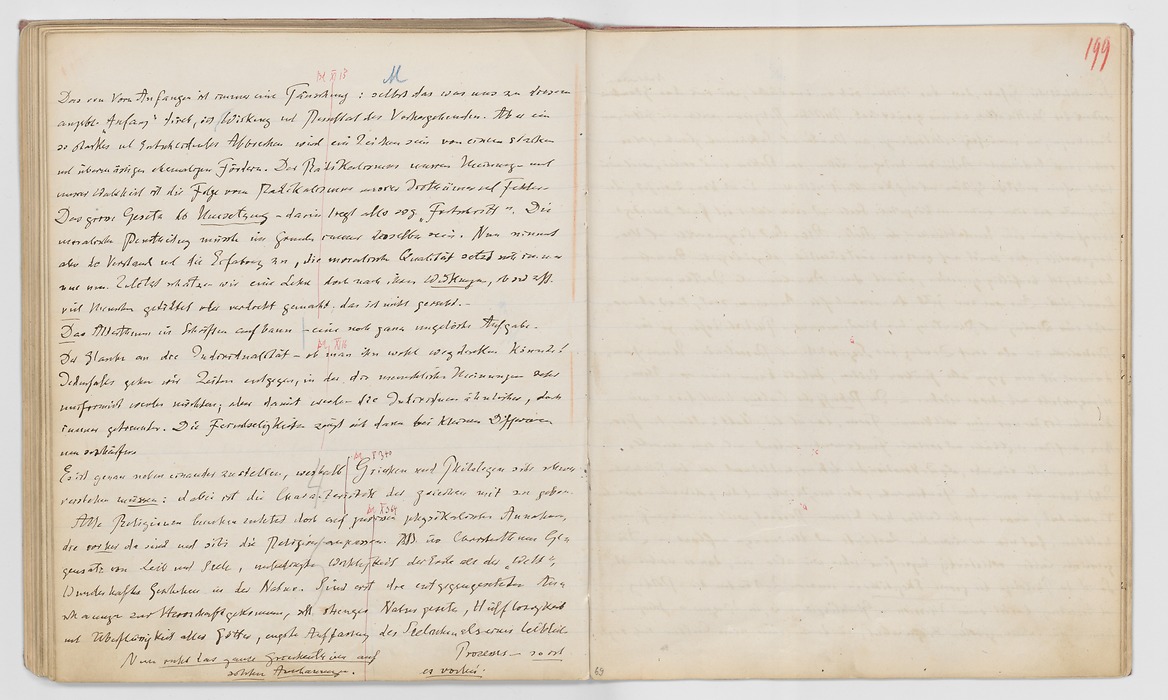 199
M
M XI 13
Das von Vorn Anfangen ist immer eine Täuschung: selbst das was uns zu diesem
angebl. „Anfang“ trieb, ist Wirkung und Resultat des Vorhergehenden. Aber ein
so starkes und entscheidendes Abbrechen wird ein Zeichen sein von einem starken
und übermässigen ehemaligen Fördern. Der Radikalismus unserer Meinungen und
unserer Wahrheit ist die Folge vom Radikalismus unserer Irrthümer und Fehler.
Das grosse Gesetz der Umsetzung — darin liegt aller sog. „Fortschritt“. Die
moralische Beurtheilung müsste im Grunde immer dieselbe sein. Nun nimmt
aber der Verstand und die Erfahrung zu, die moralische Qualität setzt sich immer
nur um. Zuletzt schätzen wir eine Lehre doch nach ihren Wirkungen, ob sie zB.
viel Menschen getödtet oder verdreht gemacht: das ist nicht gerecht.—
Das Alterthum in Schriften aufbauen — eine noch ganz ungelöste Aufgabe.
M XI 16
Der Glaube an die Individualität — ob man ihn wohl wegdenken könnte!
Jedenfalls gehen wir Zeiten entgegen, in der die menschlichen Meinungen sehr
uniformirt werden möchten; aber damit werden die Individuen ähnlicher, doch
immer getrennter. Die Feindseligkeit zeigt sich dann bei kleinen Differenzen
um so schärfer.
M X 340
Es ist genau neben einander zu stellen, weshalb Griechen und Philologen sich schwer
verstehen müssen: dabei ist die Charakteristik der Griechen mit zu geben.
M X 364
Alle Religionen beruhen zuletzt doch auf gewissen physikalischen Annahmen,
die vorher da sind und sich die Religion anpassen. ZB im Christenthum Ge-
gensatz von Leib und Seele, unbedingte Wichtigkeit der Erde als der „Welt“,
Wunderhaftes Geschehen in der Natur. Sind erst die entgegengesetzten An-
schauungen zur Herrschaft gekommen, zB. strenges Naturgesetz, Hülflosigkeit
und Überflüssigkeit aller Götter, engste Auffassung des Seelischen als eines leiblich
Prozesses — so ist
es vorbei.
Nun ruht das ganze Griechenthum auf
solchen Anschauungen.
69